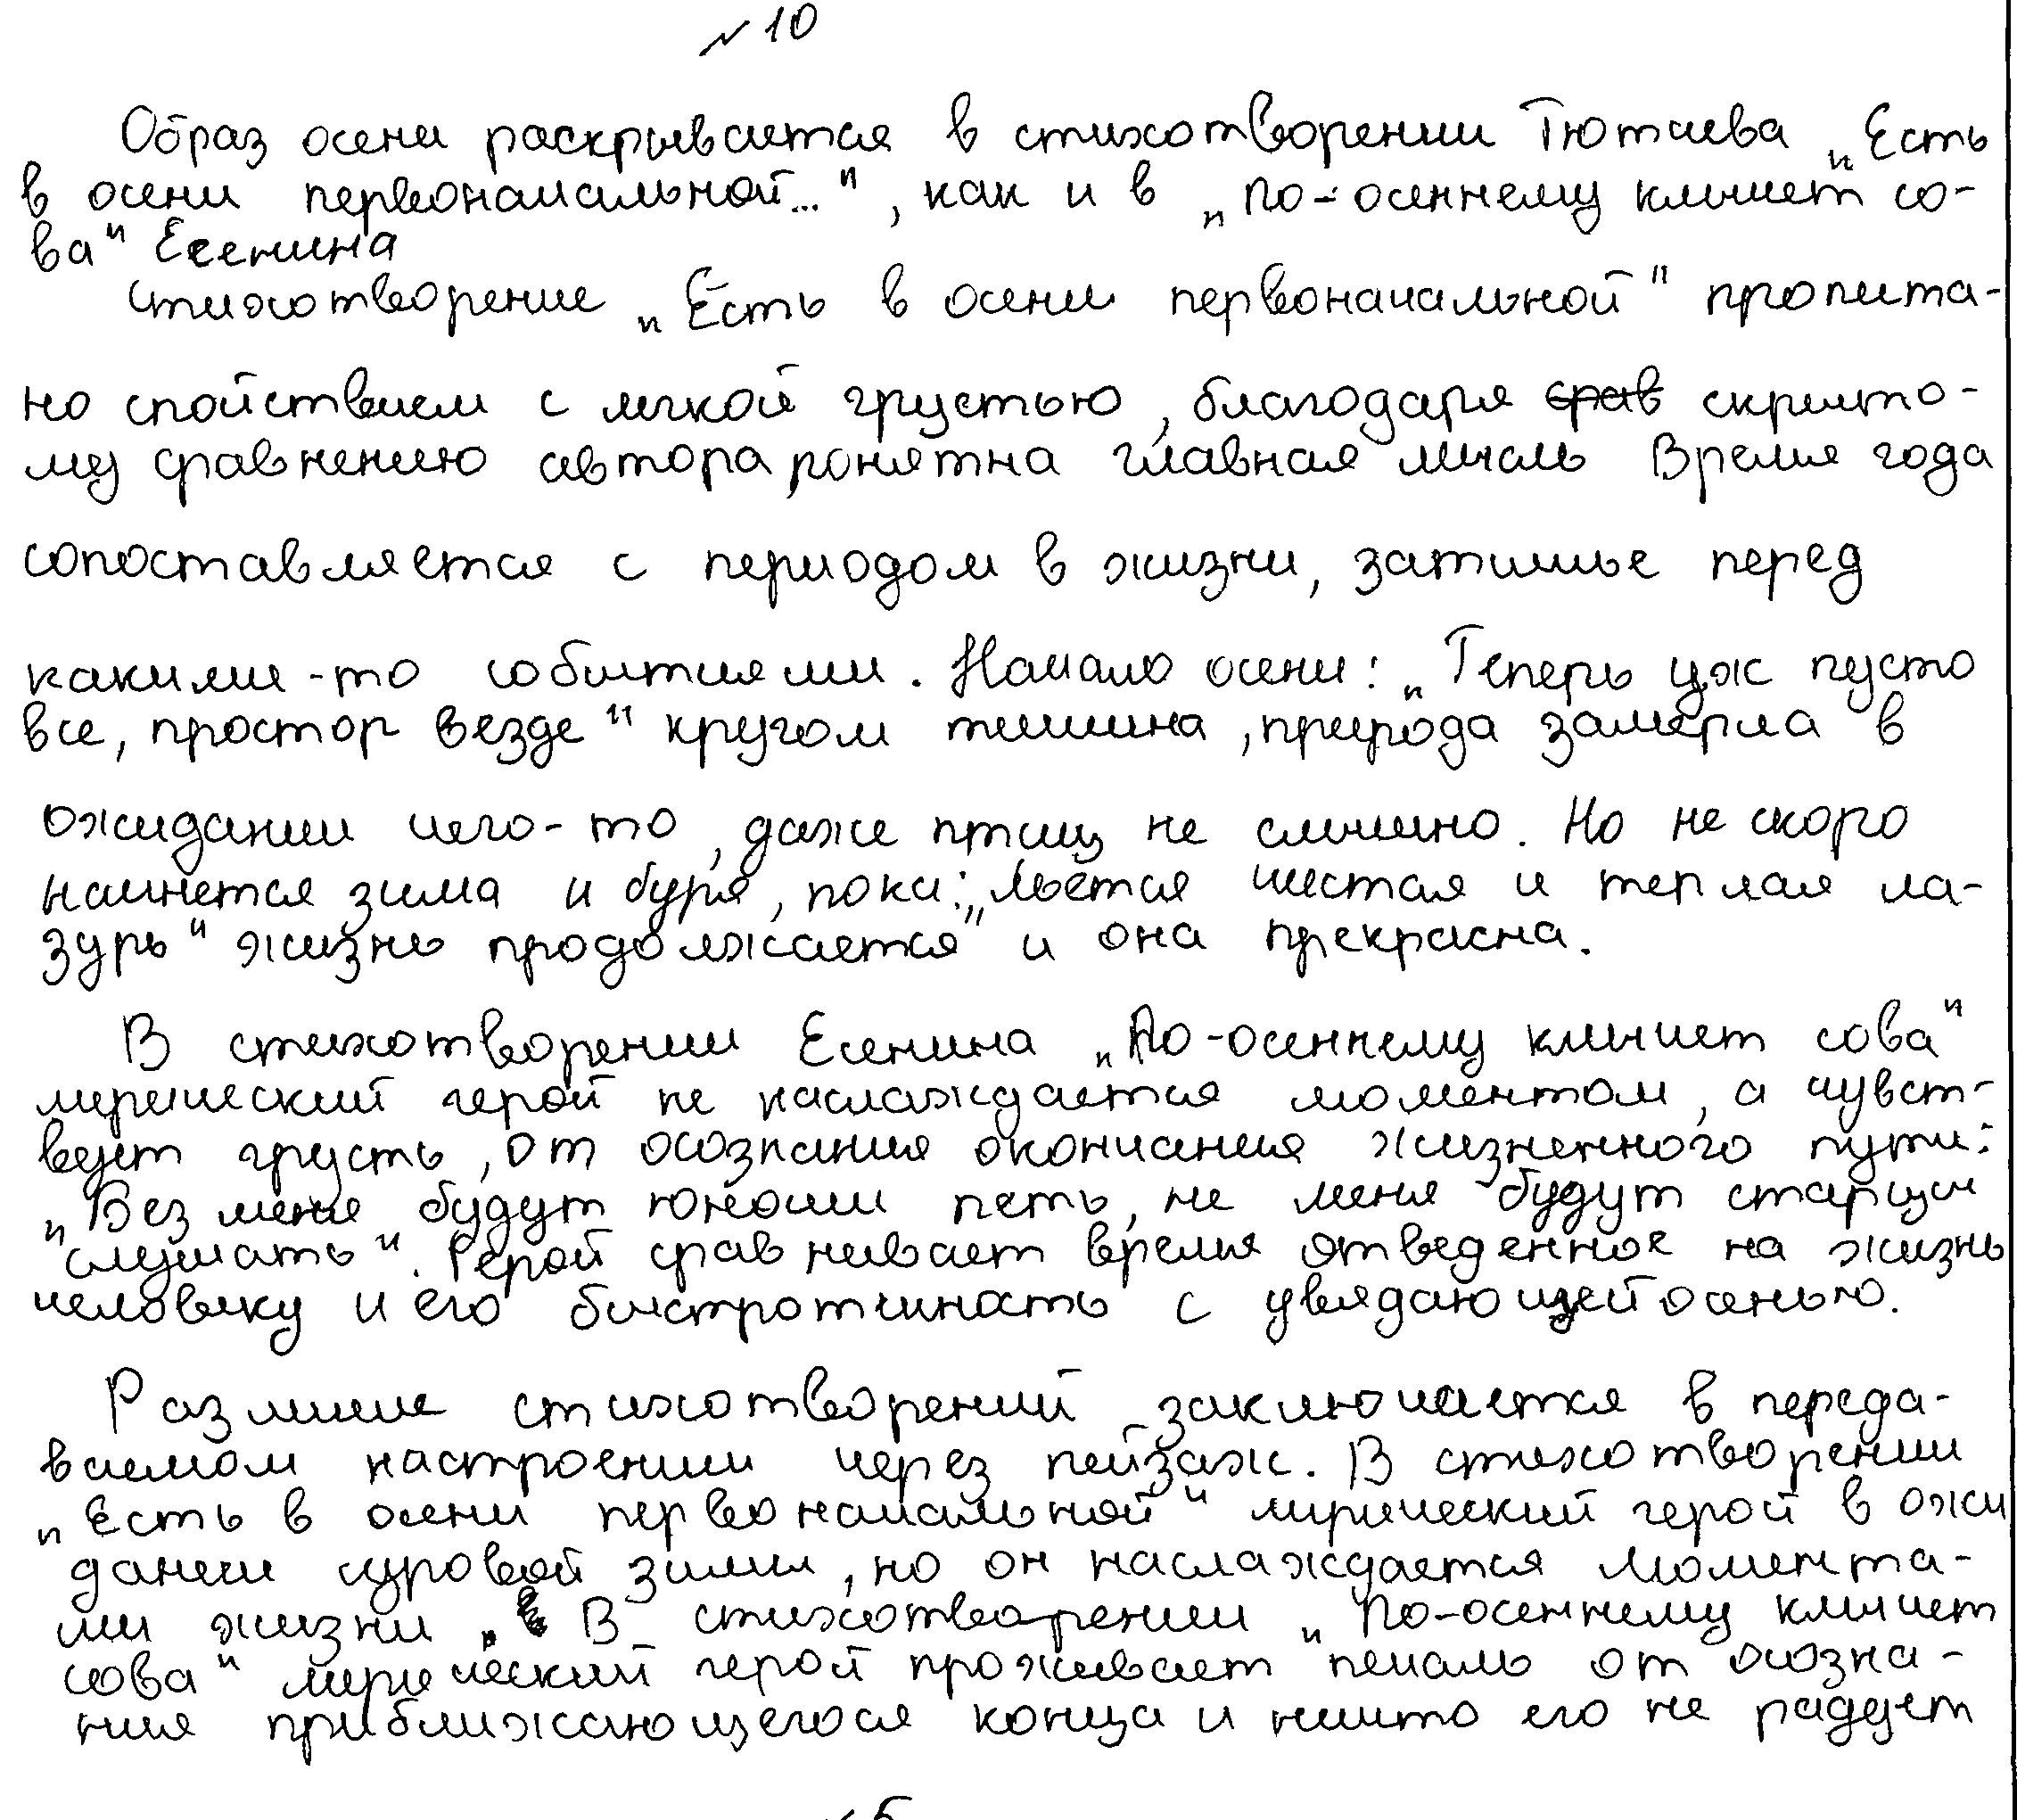 № 10
Образ осени раскрывается в стихотворении Тютчева „Есть
в осени первоначальной...“, как и в „По-осеннему кличет со-
ва“ Есенина
Стихотворение „Есть в осени первоначальной“ пропита-
но спойствием с легкой грустью, благодаря срав скрыто-
му сравнению автора, понятна главная мысль Время года
сопоставляется с периодом в жизни, затишье перед
какими-то событиями. Начало осени: „Теперь уж пусто
все, простор везде“ кругом тишина, природа замерла в
ожидании чего-то, даже птиц не слышно. Но не скоро
начнется зима и буря, пока: „Льется чистая и теплая ла-
зурь“ жизнь продолжается“ и она прекрасна.
В стихотворении Есенина „По-осеннему кличет сова“
лирический герой не наслаждается моментом, а чувст-
вует грусть, от осознания окончания жизненного пути:
„Без меня будут юноши петь, не меня будут старцы
слушать“. Герой сравнивает время отведенное на жизнь
человеку и его быстротчность с увядающей осенью.
Различие стихотворений заключается в переда-
ваемом настроении через пейзаж. В стихотворении
„Есть в осени первоначальной“ лирический герой в ожи
дании суровой зимы, но он наслаждается момента-
ми жизни. В стихотворении „По-осеннему кличет
сова“ лирический герой проживает печаль от осозна-
ния приближающегося конца и ничто его не радует